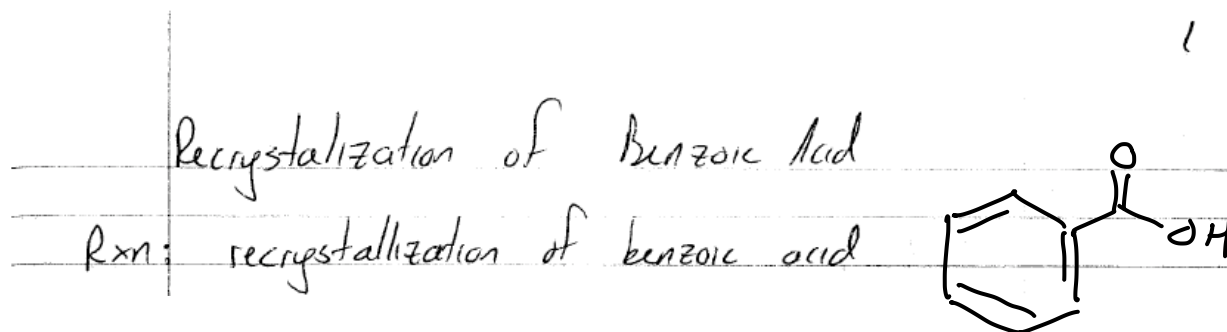 1
Recrystalization of Benzoic Acid
Rxn: recrystallization of benzoic acid
O
OH